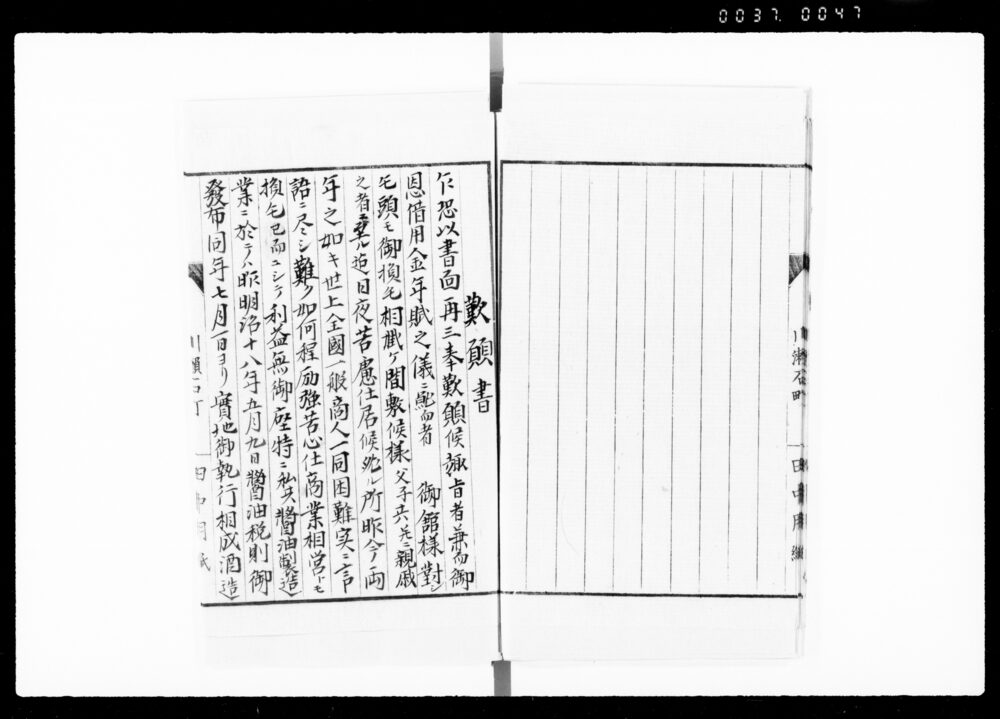 0037. 0047
歎願書
乍恐以書面再三奉歎願候諏旨者兼而御
恩借用金年賦之儀ニ就而者 御館様對シ
毛頭モ御損毛相掛ケ間敷候様父子共先ニ親戚
之者ニ至ル迠日夜苦慮仕居候然ル所昨今両
年之如キ世上全國一般商人一同困難実ニ言
語ニ尽シ難ク如何程励強苦心仕商業相営トモ
損毛已而ニシテ利益無御座特ニ私共醬油製造
業ニ於テハ昨明治十八年五月九日醬油税則御
發布同年七月一日ヨリ實地御執行相成酒造
川瀬石町
田中用紙